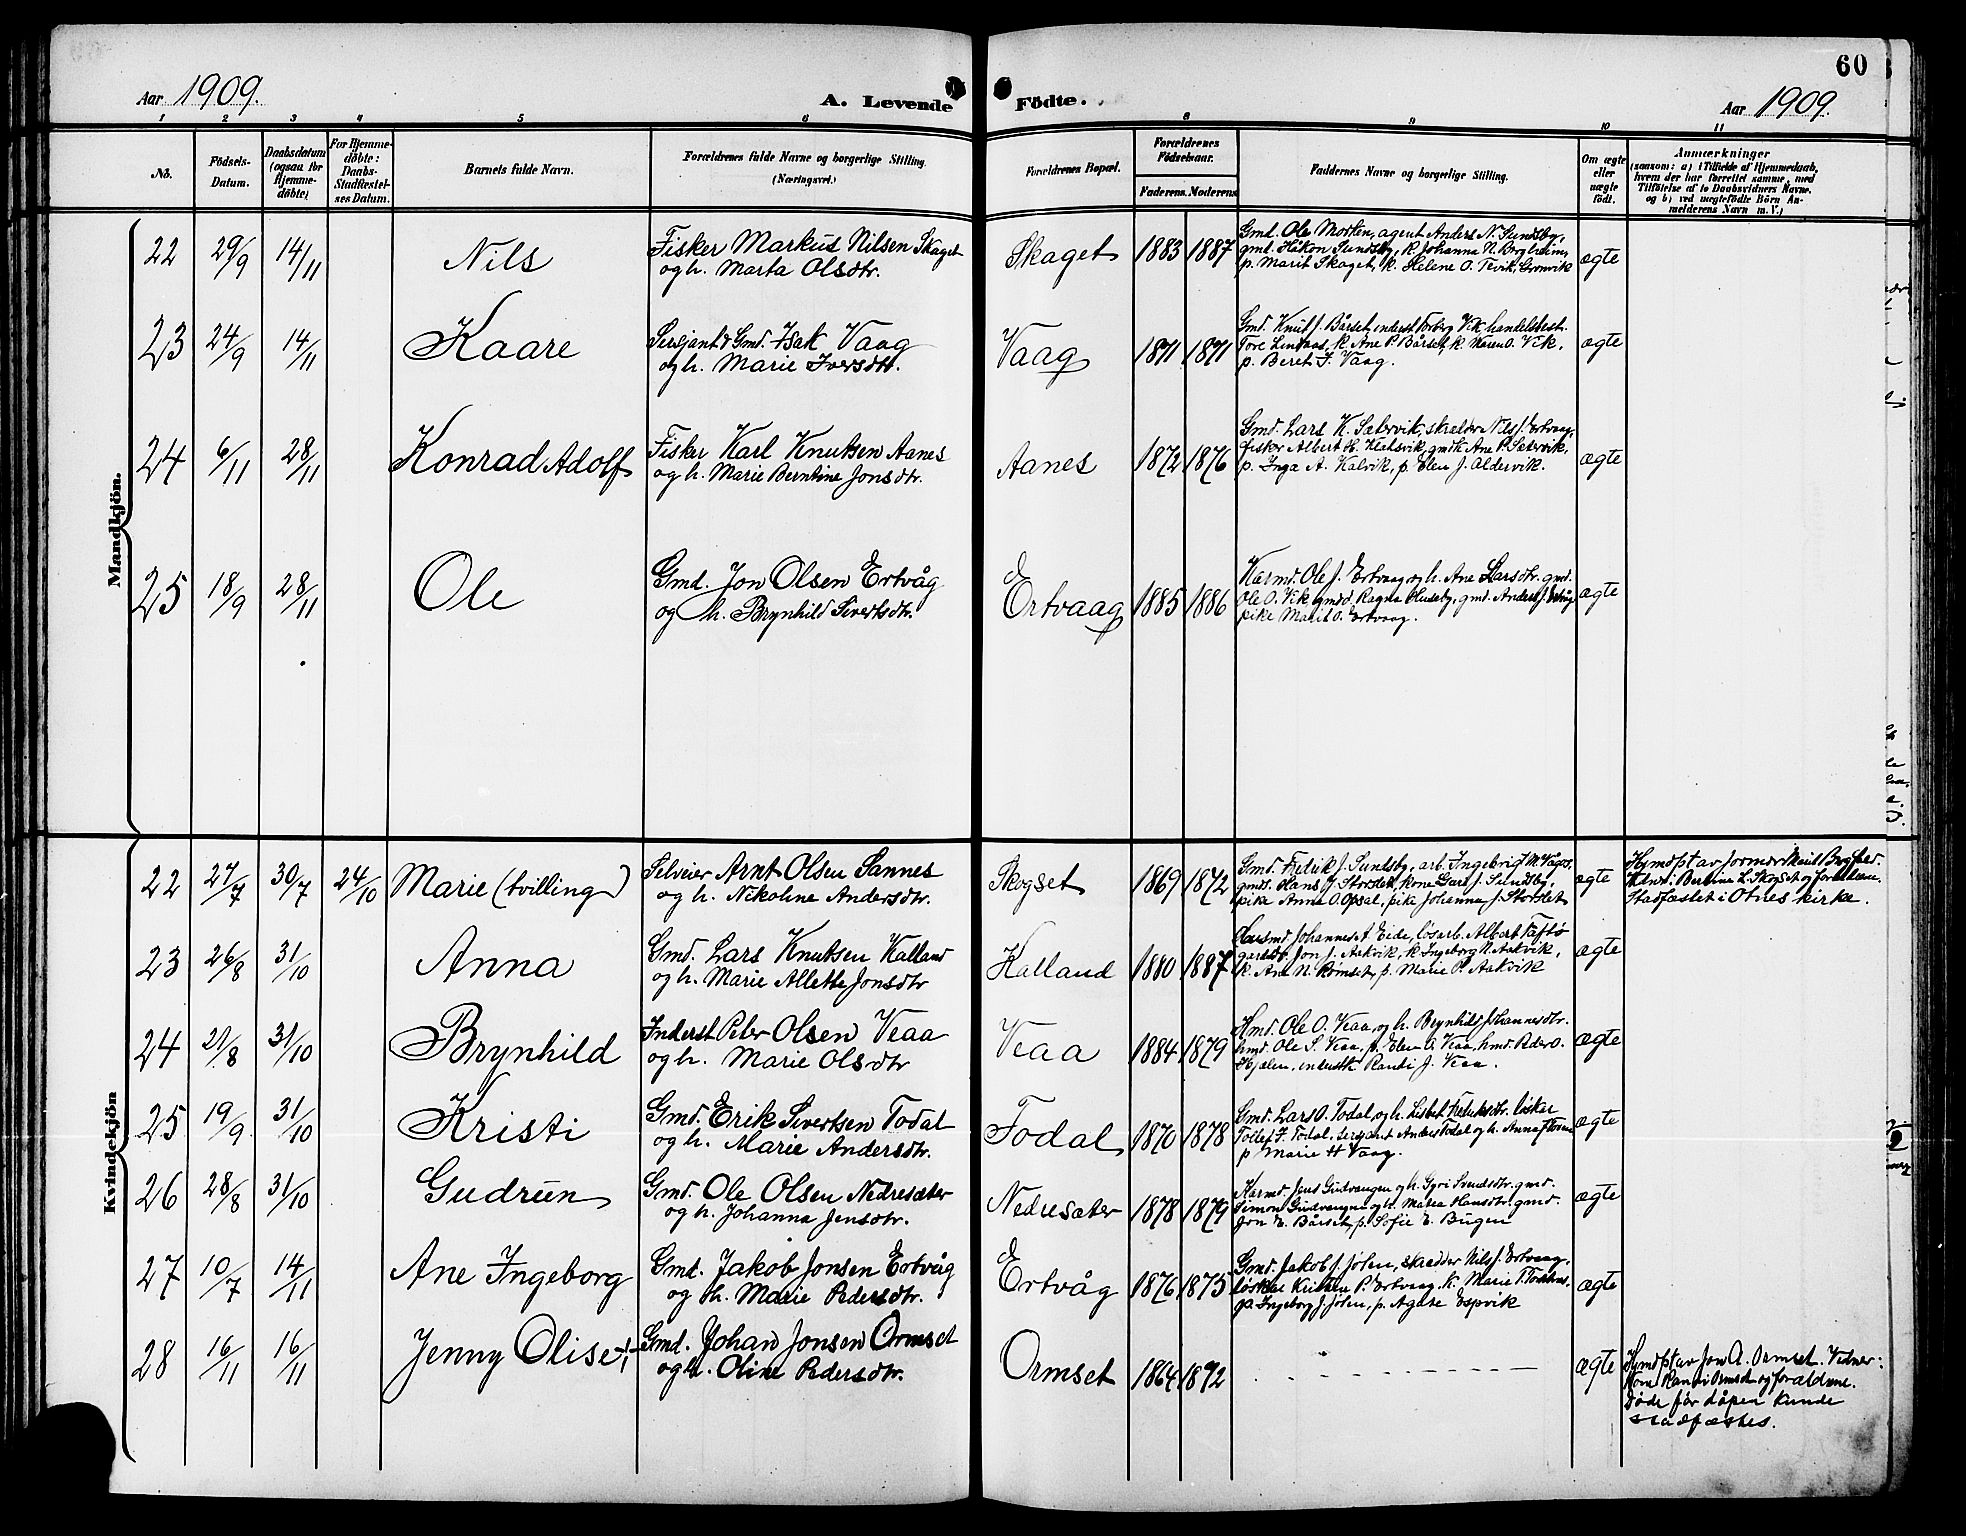 60
Aar 1909.
A. Levende Födte.
Aar 1909.
1 2 3 4 5 6 8 9 10 11
No.
Födsels-Datum.
Daabsdatum (ogsaa for Hjemme-döbte)
For Hjemme-döbte: Daabs-Stadfæstel-ses Datum.
Barnets fulde Navn.
Forældrenes fulde Navne og borgerlige Stilling. (Næringsvei.)
Forældrenes Bopæl.
Forældrenes Födselsaar.
Faderens. Moderens.
Faddernes Navne og borgerlige Stilling.
Om ægte eller uægte födt.
Anmærkninger
(saasom: a) i Tilfælde af Hjemmedaab,
hvem der har forrettet samme, med
Tilföielse af to Daabsvidners Navne.
og b) ved uægtefödte Börn An-
melderens Navn m. V.)
Mandkjön.
22 29/9 14/11 Nils
Fisker Markus Nilsen Skaget
og h. Marta Olsdtr.
Skaget 1883 1887
Gmd. Ole Morten, agent Anders N. Sundsby,
gmd. Håkon Sundsby, k. Johanna N. Bergheim,
p. Marit Skaget, k. Helene O. Tevik, Grønvik
ægte
23 24/9 14/11 Kaare
Sersjant & Gmd. Isak Vaag
og h. Marie Iversdtr.
Vaag 1871 1871
Gmd. Knut J. Bårset, inderst Torberg Vik, handelsbest.
Tore Lintaas, k. Ane P. Bårset, k. Maren O. Vik,
p. Beret I. Vaag.
ægte
24 6/11 28/11 Konrad Adolf
Fisker Karl Knutsen Aanes
og h. Marie Berntine Jonsdtr.
Aanes 1872 1876
Gmd. Lars K. Sætervik, skrædder Nils J. Ertvaag,
fisker Albert H. Kalsvik, gmdk. Ane P. Sætervik,
p. Inga A. Kalvik, p. Elen J. Aldervik.
ægte
25 18/9 28/11 Ole
Gmd. Jon Olsen Ertvåg
og h. Brynhild Sivertsdtr.
Ertvaag 1885 1886
Karmd. Ole J. Ertvaag og h. Ane Larsdtr. gmd.
Ole O. Vik, gmdd. Ragna Huseby, gmd. Anders J. Ertvåg
pike Marit O. Ertvaag.
ægte
Kvindekjön
22 27/7 30/7 24/10 Marie (tvilling)
Selveier Arnt Olsen Sannes
og h. Nikoline Andersdtr.
Skogset 1869 1872
Gmd. Fredrik J. Sundsby, arb. Ingebrigt M. Vågos,
gmd. Hans J. Storslet, kone Guri J. Sundsby,
pike Anna O. Opsal, pike Johanna J. Storslet
ægte
Hjmdøpt av jormor Marit Bergheim.
Vidner: Berntine L. Skogset og forældrene.
Stadfæstet i Otnes kirke.
23 26/8 31/10 Anna
Gmd. Lars Knutsen Kalland
og h. Marie Allette Jonsdtr
Kalland 1880 1887
Karmd. Johannes A. Eide, løsarb. Albert Taftø
gardbr. Jon J. Aakvik, k. Ingeborg N. Aakvik,
k. Ane N. Rømset, p. Marie P. Aakvik
ægte
24 21/8 31/10 Brynhild
Inderst Peter Olsen Veaa
og h. Marie Olsdtr
Veaa 1884 1879
Hmd. Ole O. Veaa og h. Brynhild Johannesdtr.
hmd. Ole S. Veaa, p. Elen O. Veaa, hmd. Peder O.
Hjælen, inderstk. Randi J. Veaa.
ægte
25 19/9 31/10 Kristi
Gmd. Erik Sivertsen Todal
og h. Marie Andersdtr.
Todal 1870 1878
Gmd. Lars O. Todal og h. Lisbet Fredriksdtr. løskar
Tollef F. Todal, sersjant Anders Todal og h. Anna
p. Marie H. Vaag.
ægte
26 28/8 31/10 Gudrun
Gmd. Ole Olsen Nedresæter
og h. Johanna Jensdtr.
Nedresæter 1878 1879
Karmd. Jens Gudvangen og h. Gyri Svendsdtr. gmd.
Simon Gudvangen og h. Marea Hansdtr. gmd.
Jon E. Bårset, p. Sofie E. Bugen
ægte
27 10/7 14/11 Ane Ingeborg
Gmd. Jakob Jonsen Ertvåg
og h. Marie Pedersdtr.
Ertvåg 1876 1875
Gmd. Jakob J. Jølen, skrædder Nils J. Ertvaag,
løskar Kristen P. Ertvaag, k. Marie T.
p. Ingeborg J. Jølen, p. Agate Espvik
ægte
28 16/11 16/11 Jenny Olise +
Gmd. Johan Jonsen Ormset
og h. Oline Pedersdtr.
Ormset 1864 1872
ægte
Hjmdøpt av Jon A. Ormset. Vidner:
Kone Randi Ormset og forældrene.
Døde før dåpen kunde
stadfæstes.